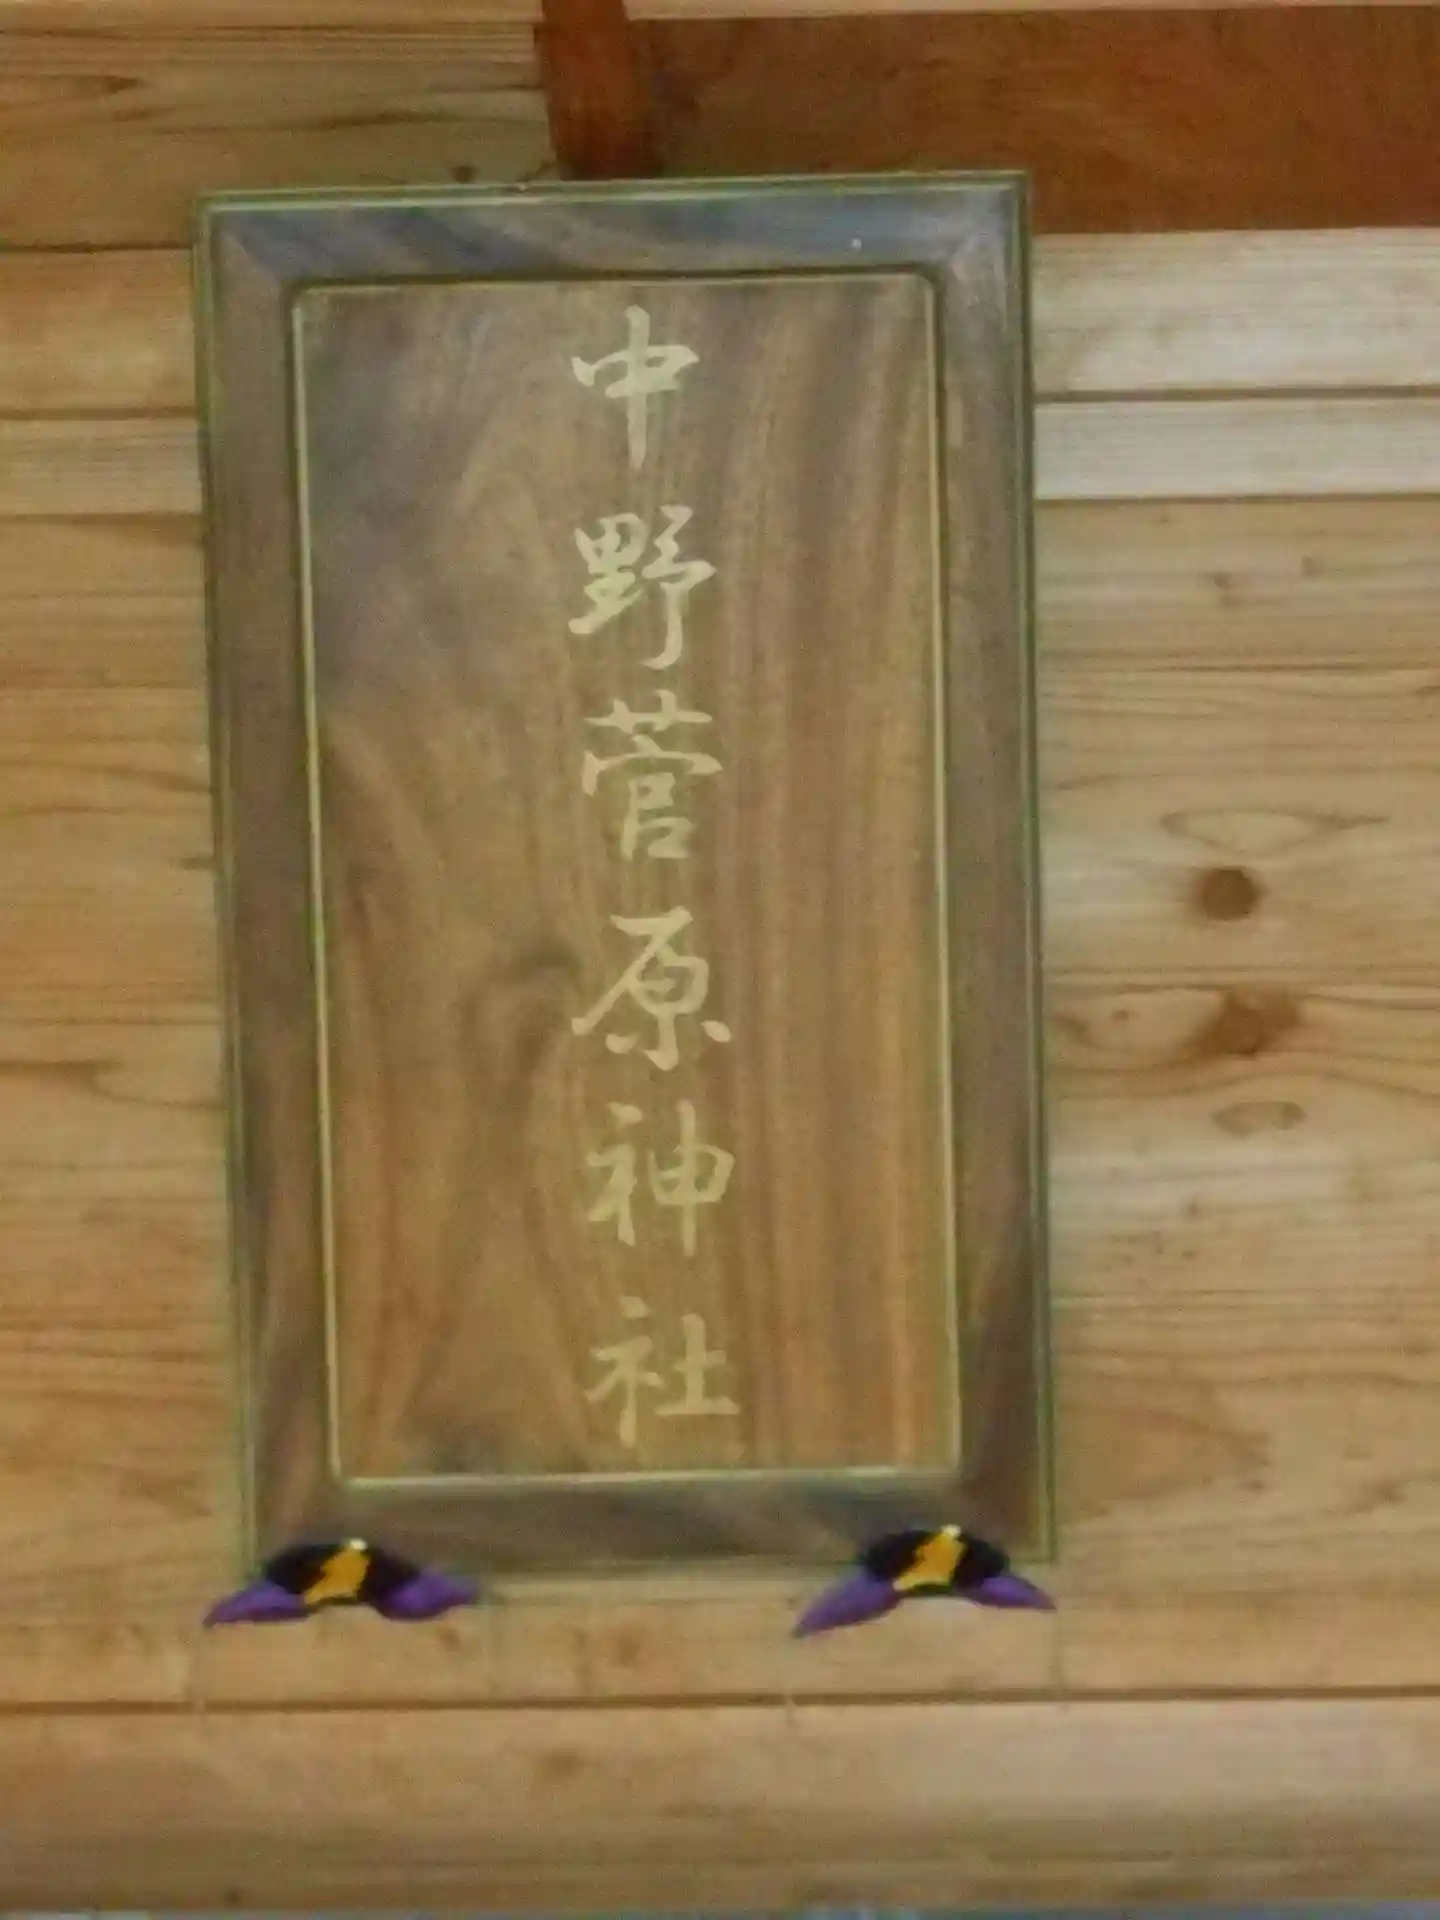 中野菅原神社